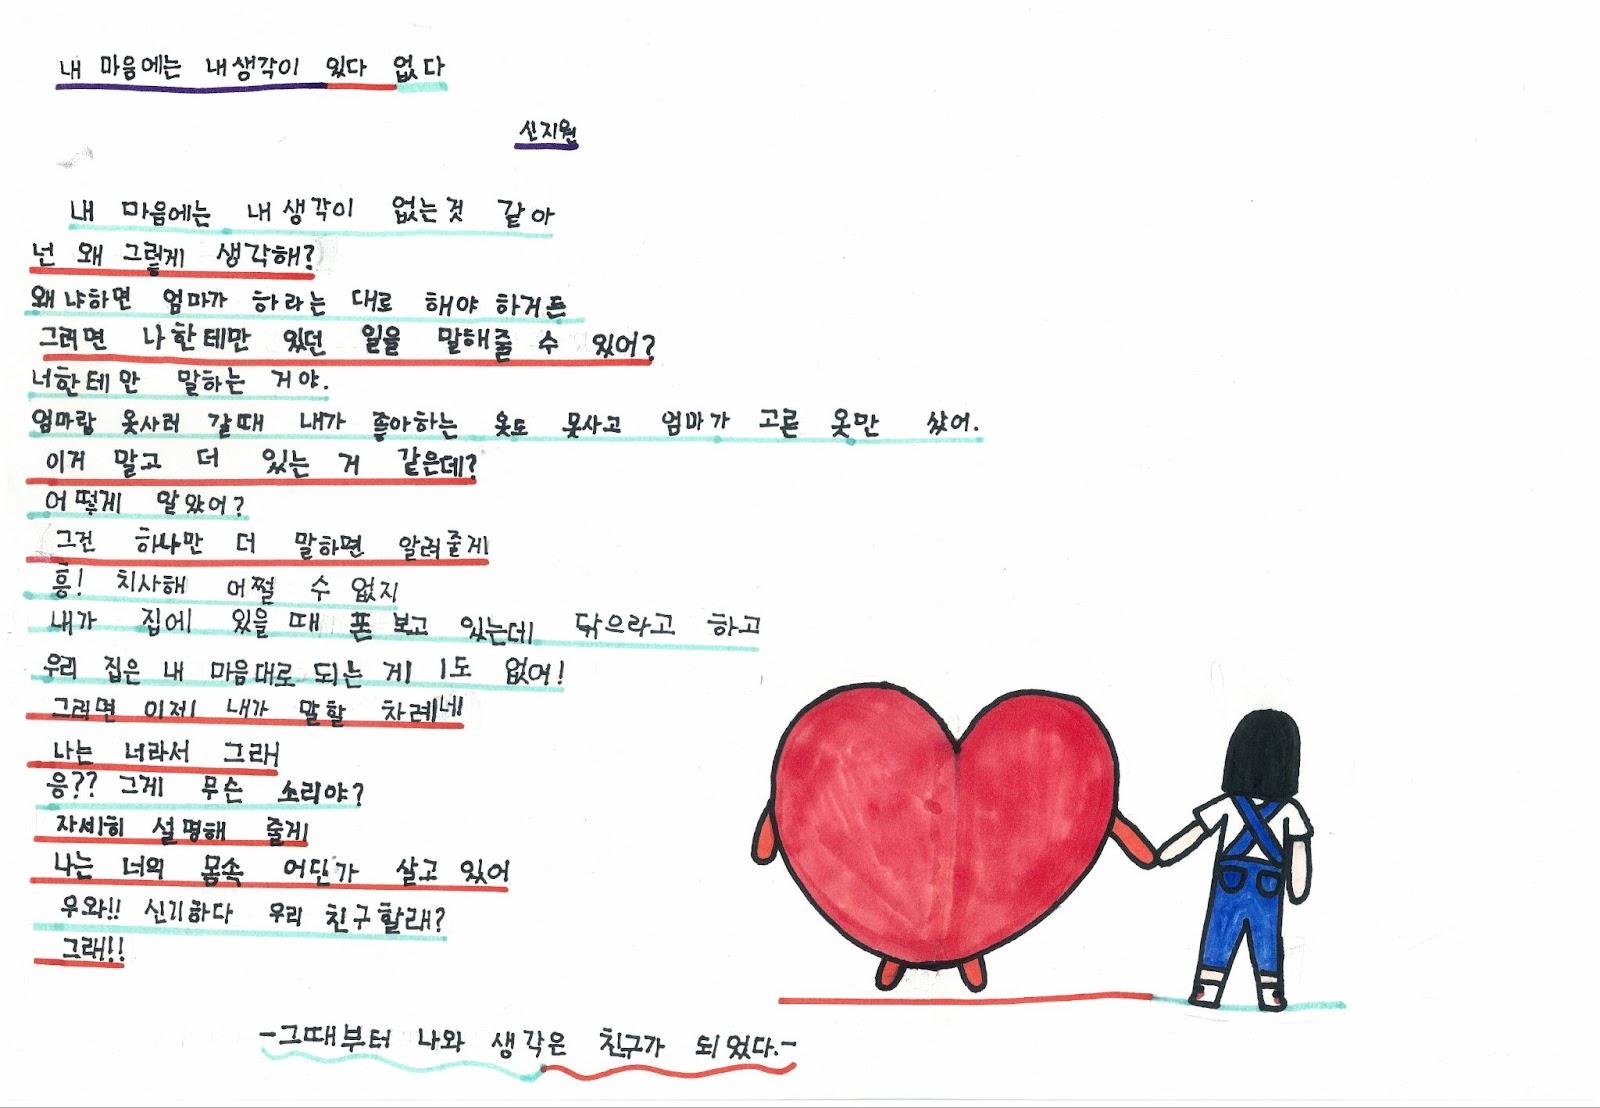 내 마음에는 내생각이 있다 없다
신지원
내 마음에는 내생각이 없는것 같아
넌 왜 그렇게 생각해?
왜냐하면 엄마가 하라는 대로 해야 하거든
그러면 나한테만 있던 일을 말해줄 수 있어?
너한테만 말하는 거야.
엄마랑 옷사러 갈때 내가 좋아하는 옷도 못사고 엄마가 고른 옷만 샀어.
이거 말고 더 있는 거 같은데?
어떻게 알았어?
그건 하나만 더 말하면 알려줄게
흥! 치사해 어쩔 수 없지
내가 집에 있을때 폰 보고 있는데 닦으라고 하고
우리 집은 내 마음대로 되는 게 1도 없어!
그러면 이제 내가 말할 차례네
나는 너라서 그래
응?? 그게 무슨 소리야?
자세히 설명해 줄게
나는 너의 몸속 어딘가 살고 있어
우와!! 신기하다 우리 친구할래?
그래!!
-그때부터 나와 생각은 친구가 되었다.-